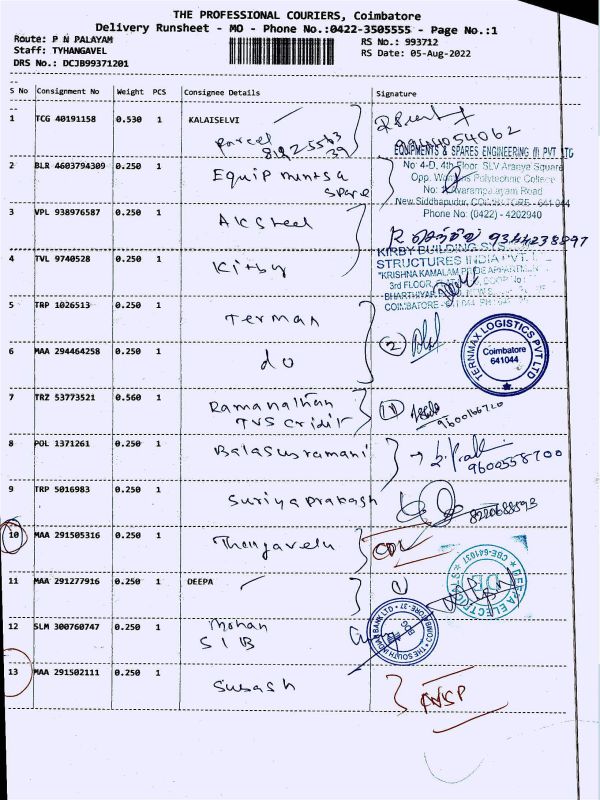 THE PROFESSIONAL COURIERS, Coimbatore
Delivery Runsheet - MO - Phone No.:0422-3505555 - Page No.:1
Route: P N PALAYAM
RS No.: 993712
Staff: TYHANGAVEL
RS Date: 05-Aug-2022
DRS No.: DCJB99371201
S No Consignment No Weight PCS Consignee Details Signature
1 TCG 40191158 0.530 1 KALAISELVI
Parcel
2 BLR 4603794309 0.250 1 Equipments a
spare
EQUIPMENTS & SPARES ENGINEERING (I) PVT LTD
No: 4-D, 4th Floor, SLV Aranya Square
Opp. Womens Polytechnic College
New Siddhapudur, COIMBATORE - 641 044
Phone No: (0422) - 4202940
3 VPL 938976587 0.250 1 AK Steel
9344238897
4 TVL 9740528 0.250 1 Kirby
KIRBY BUILDING SYS
STRUCTURES INDIA PVT. L
5 TRP 1026513 0.250 1 Terman
6 MAA 294464258 0.250 1 do
2
TERNMAX LOGISTICS PVT LTD
Coimbatore
641044
7 TRZ 53773521 0.560 1 Ramanathan
TVS Cridit
9600166720
8 POL 1371261 0.250 1 Balasusramani
9600558700
9 TRP 5016983 0.250 1 Suriyaprakash
10 MAA 291505316 0.250 1 Thangavelu
11 MAA 291277916 0.250 1 DEEPA
DEEPA ELECTRICALS
CBE-641037
12 SLM 300760747 0.250 1 Mohan
SIB
THE SOUTH INDIAN BANK LTD
13 MAA 291502111 0.250 1 Subash